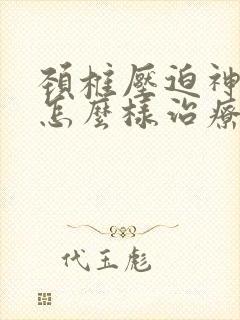 頚椎壓迫神
怎麼樣治療
代玉彪